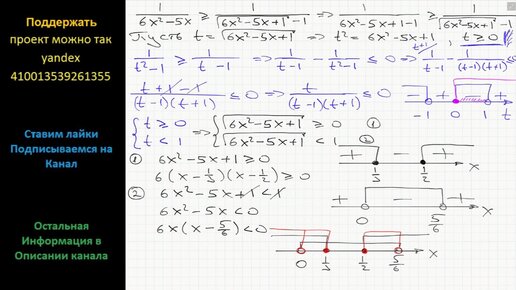 Поддержать
проект можно так
yandex
410013539261355
Ставим лайки
Подписываемся на
Канал
Остальная
Информация в
Описании канала
1/(6x²-5x) ≥ 1/(√(6x²-5x+1) -1) => 1/(6x²-5x+1-1) ≥ 1/(√(6x²-5x+1) -1)
Пусть t = √(6x²-5x+1) => t² = 6x²-5x+1, t ≥ 0
1/(t²-1) ≥ 1/(t-1) => 1/(t-1) - 1/(t²-1) ≤ 0 => 1/(t-1) - 1/((t-1)(t+1))
t+1
(t+1-1)/((t-1)(t+1)) ≤ 0 => t/((t-1)(t+1)) ≤ 0
- + - +
-1 0 1 t
{ t ≥ 0 => { √(6x²-5x+1) ≥ 0 ①
{ t < 1 { √(6x²-5x+1) < 1 ②
① 6x²-5x+1 ≥ 0
6(x-1/3)(x-1/2) ≥ 0
+ - +
1/3 1/2 x
② 6x²-5x+1 < 1
6x²-5x < 0
6x(x-5/6) < 0
+ - +
0 5/6 x
0 1/3 1/2 5/6 x